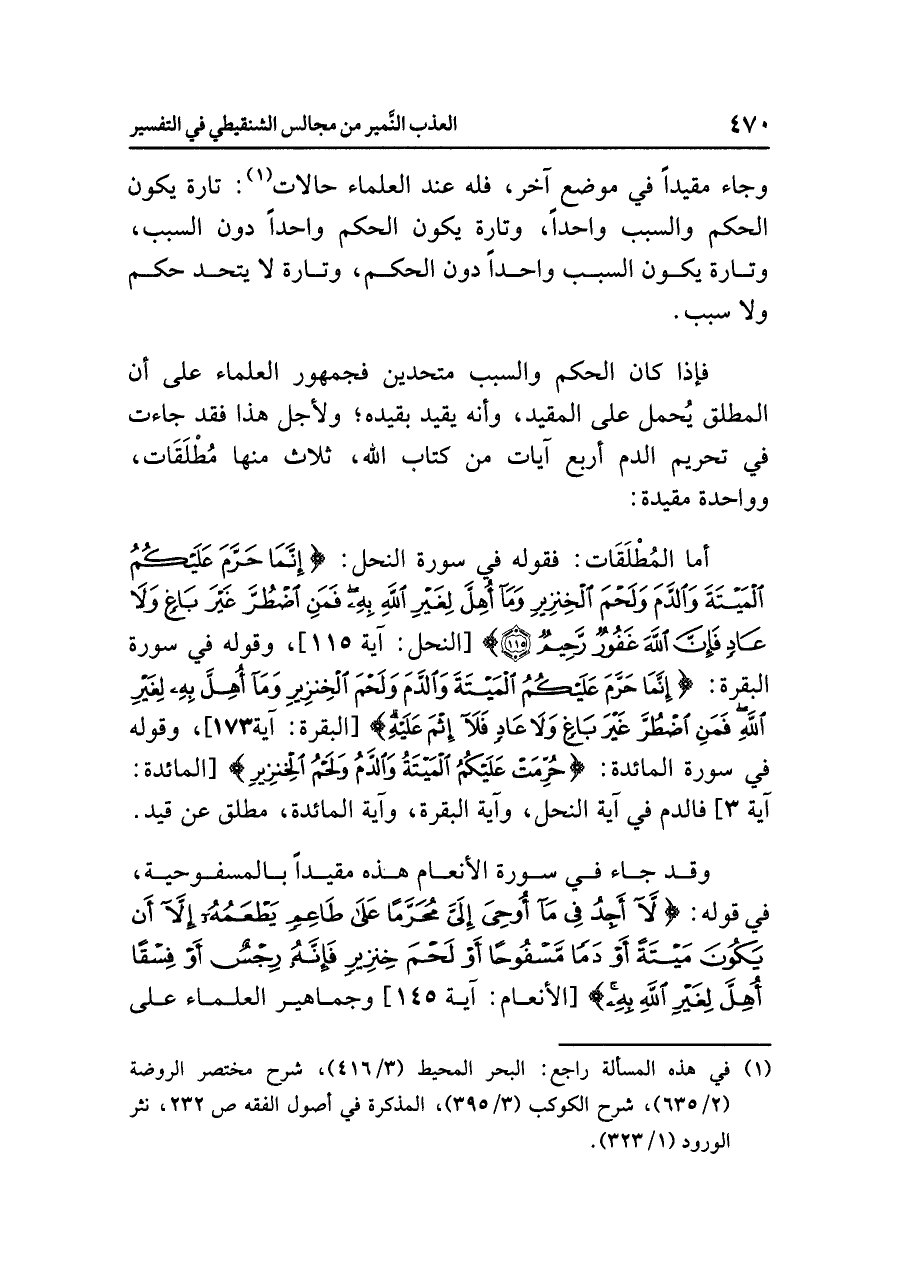 ٤٧٠ العذب النَّمير من مجالس الشنقيطي في التفسير
وجاء مقيداً في موضع آخر، فله عند العلماء حالات(١): تارة يكون
الحكم والسبب واحداً، وتارة يكون الحكم واحداً دون السبب،
وتارة يكون السبب واحداً دون الحكم، وتارة لا يتحد حكم
ولا سبب.
فإذا كان الحكم والسبب متحدين فجمهور العلماء على أن
المطلق يُحمل على المقيد، وأنه يقيد بقيده؛ ولأجل هذا فقد جاءت
في تحريم الدم أربع آيات من كتاب الله، ثلاث منها مُطْلَقَات،
وواحدة مقيدة:
أما المُطْلَقَات: فقوله في سورة النحل: ﴿إِنَّمَا حَرَّمَ عَلَيْكُمُ
ٱلْمَيْتَةَ وَٱلدَّمَ وَلَحْمَ ٱلْخِنزِيرِ وَمَآ أُهِلَّ لِغَيْرِ ٱللَّهِ بِهِۦ ۖ فَمَنِ ٱضْطُرَّ غَيْرَ بَاغٍ وَلَا
عَادٍ فَإِنَّ ٱللَّهَ غَفُورٌ رَّحِيمٌ ١١٥﴾ [النحل: آية ١١٥]، وقوله في سورة
البقرة: ﴿إِنَّمَا حَرَّمَ عَلَيْكُمُ ٱلْمَيْتَةَ وَٱلدَّمَ وَلَحْمَ ٱلْخِنزِيرِ وَمَآ أُهِلَّ بِهِۦ لِغَيْرِ
ٱللَّهِ ۖ فَمَنِ ٱضْطُرَّ غَيْرَ بَاغٍ وَلَا عَادٍ فَلَآ إِثْمَ عَلَيْهِ ۚ﴾ [البقرة: آية١٧٣]، وقوله
في سورة المائدة: ﴿حُرِّمَتْ عَلَيْكُمُ ٱلْمَيْتَةُ وَٱلدَّمُ وَلَحْمُ ٱلْخِنزِيرِ﴾ [المائدة:
آية ٣] فالدم في آية النحل، وآية البقرة، وآية المائدة، مطلق عن قيد.
وقد جاء في سورة الأنعام هذه مقيداً بالمسفوحية،
في قوله: ﴿لَّآ أَجِدُ فِى مَآ أُوحِىَ إِلَىَّ مُحَرَّمًا عَلَىٰ طَاعِمٍ يَطْعَمُهُۥٓ إِلَّآ أَن
يَكُونَ مَيْتَةً أَوْ دَمًا مَّسْفُوحًا أَوْ لَحْمَ خِنزِيرٍ فَإِنَّهُۥ رِجْسٌ أَوْ فِسْقًا
أُهِلَّ لِغَيْرِ ٱللَّهِ بِهِۦ ۚ﴾ [الأنعام: آية ١٤٥] وجماهير العلماء على
(١) في هذه المسألة راجع: البحر المحيط (٤١٦/٣)، شرح مختصر الروضة
(٦٣٥/٢)، شرح الكوكب (٣٩٥/٣)، المذكرة في أصول الفقه ص ٢٣٢، نثر
الورود (٣٢٣/١).